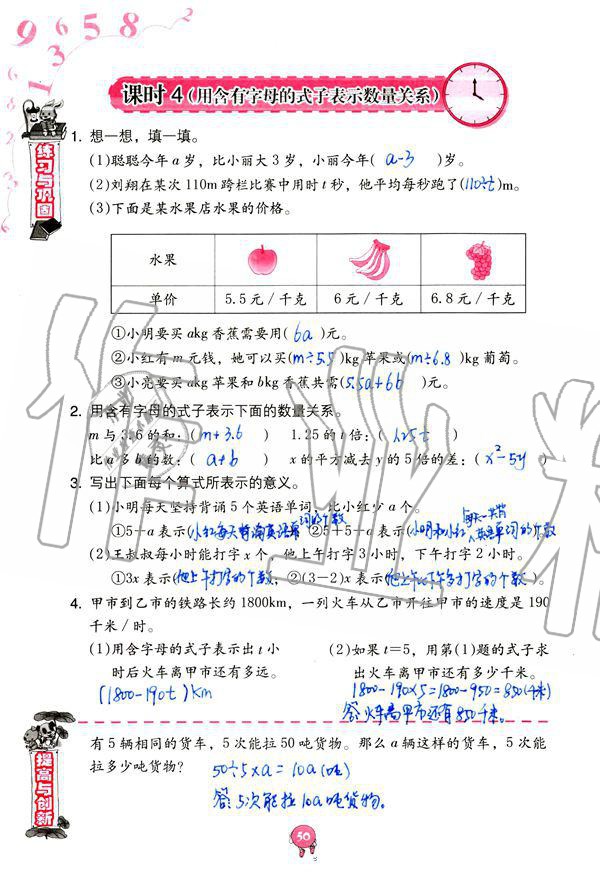 9 6 5 8 2
课时 4(用含有字母的式子表示数量关系)
练习与巩固
1. 想一想，填一填。
(1)聪聪今年 a 岁，比小丽大 3 岁，小丽今年( a-3 )岁。
(2)刘翔在某次 110m 跨栏比赛中用时 t 秒，他平均每秒跑了(110÷t)m。
(3)下面是某水果店水果的价格。
水果
单价 5.5 元/千克 6 元/千克 6.8 元/千克
①小明要买 akg 香蕉需要用( 6a )元。
②小红有 m 元钱，她可以买(m÷5.5)kg 苹果或(m÷6.8)kg 葡萄。
③小亮要买 akg 苹果和 bkg 香蕉共需(5.5a+6b)元。
2. 用含有字母的式子表示下面的数量关系。
m 与 3.6 的和：( m+3.6 ) 1.25 的 t 倍：( 1.25t )
比 a 多 b 的数：( a+b ) x 的平方减去 y 的 5 倍的差：( x²-5y )
3. 写出下面每个算式所表示的意义。
(1)小明每天坚持背诵 5 个英语单词，比小红少 a 个。
①5+a 表示(小红每天背诵英语单词的个数) ②5+5+a 表示(小明和小红每天一共背英语单词的个数)
(2)王叔叔每小时能打字 x 个，他上午打字 3 小时，下午打字 2 小时。
①3x 表示(他上午打字的个数)；②(3-2)x 表示(他上午比下午多打字的个数)。
4. 甲市到乙市的铁路长约 1800km，一列火车从乙市开往甲市的速度是 190
千米/时。
(1)用含字母的式子表示出 t 小
时后火车离甲市还有多远。
(1800-190t)km
(2)如果 t=5，用第(1)题的式子求
出火车离甲市还有多少千米。
1800-190×5=1800-950=850(千米)
答：火车离甲市还有850千米。
提高与创新
有 5 辆相同的货车，5 次能拉 50 吨货物。那么 a 辆这样的货车，5 次能
拉多少吨货物？
50÷5×a=10a(吨)
答：5次能拉10a吨货物。
50